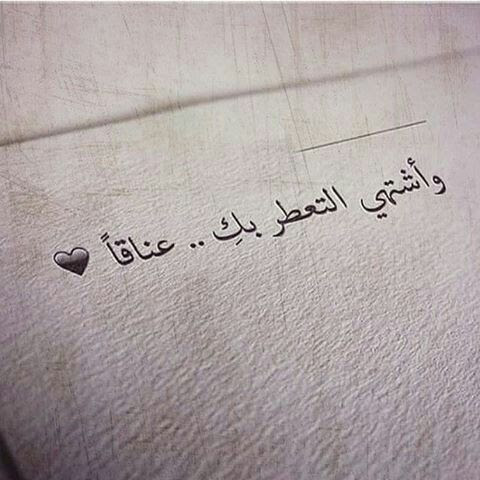 وأشتهي التعطر بكِ .. عناقاً 🖤